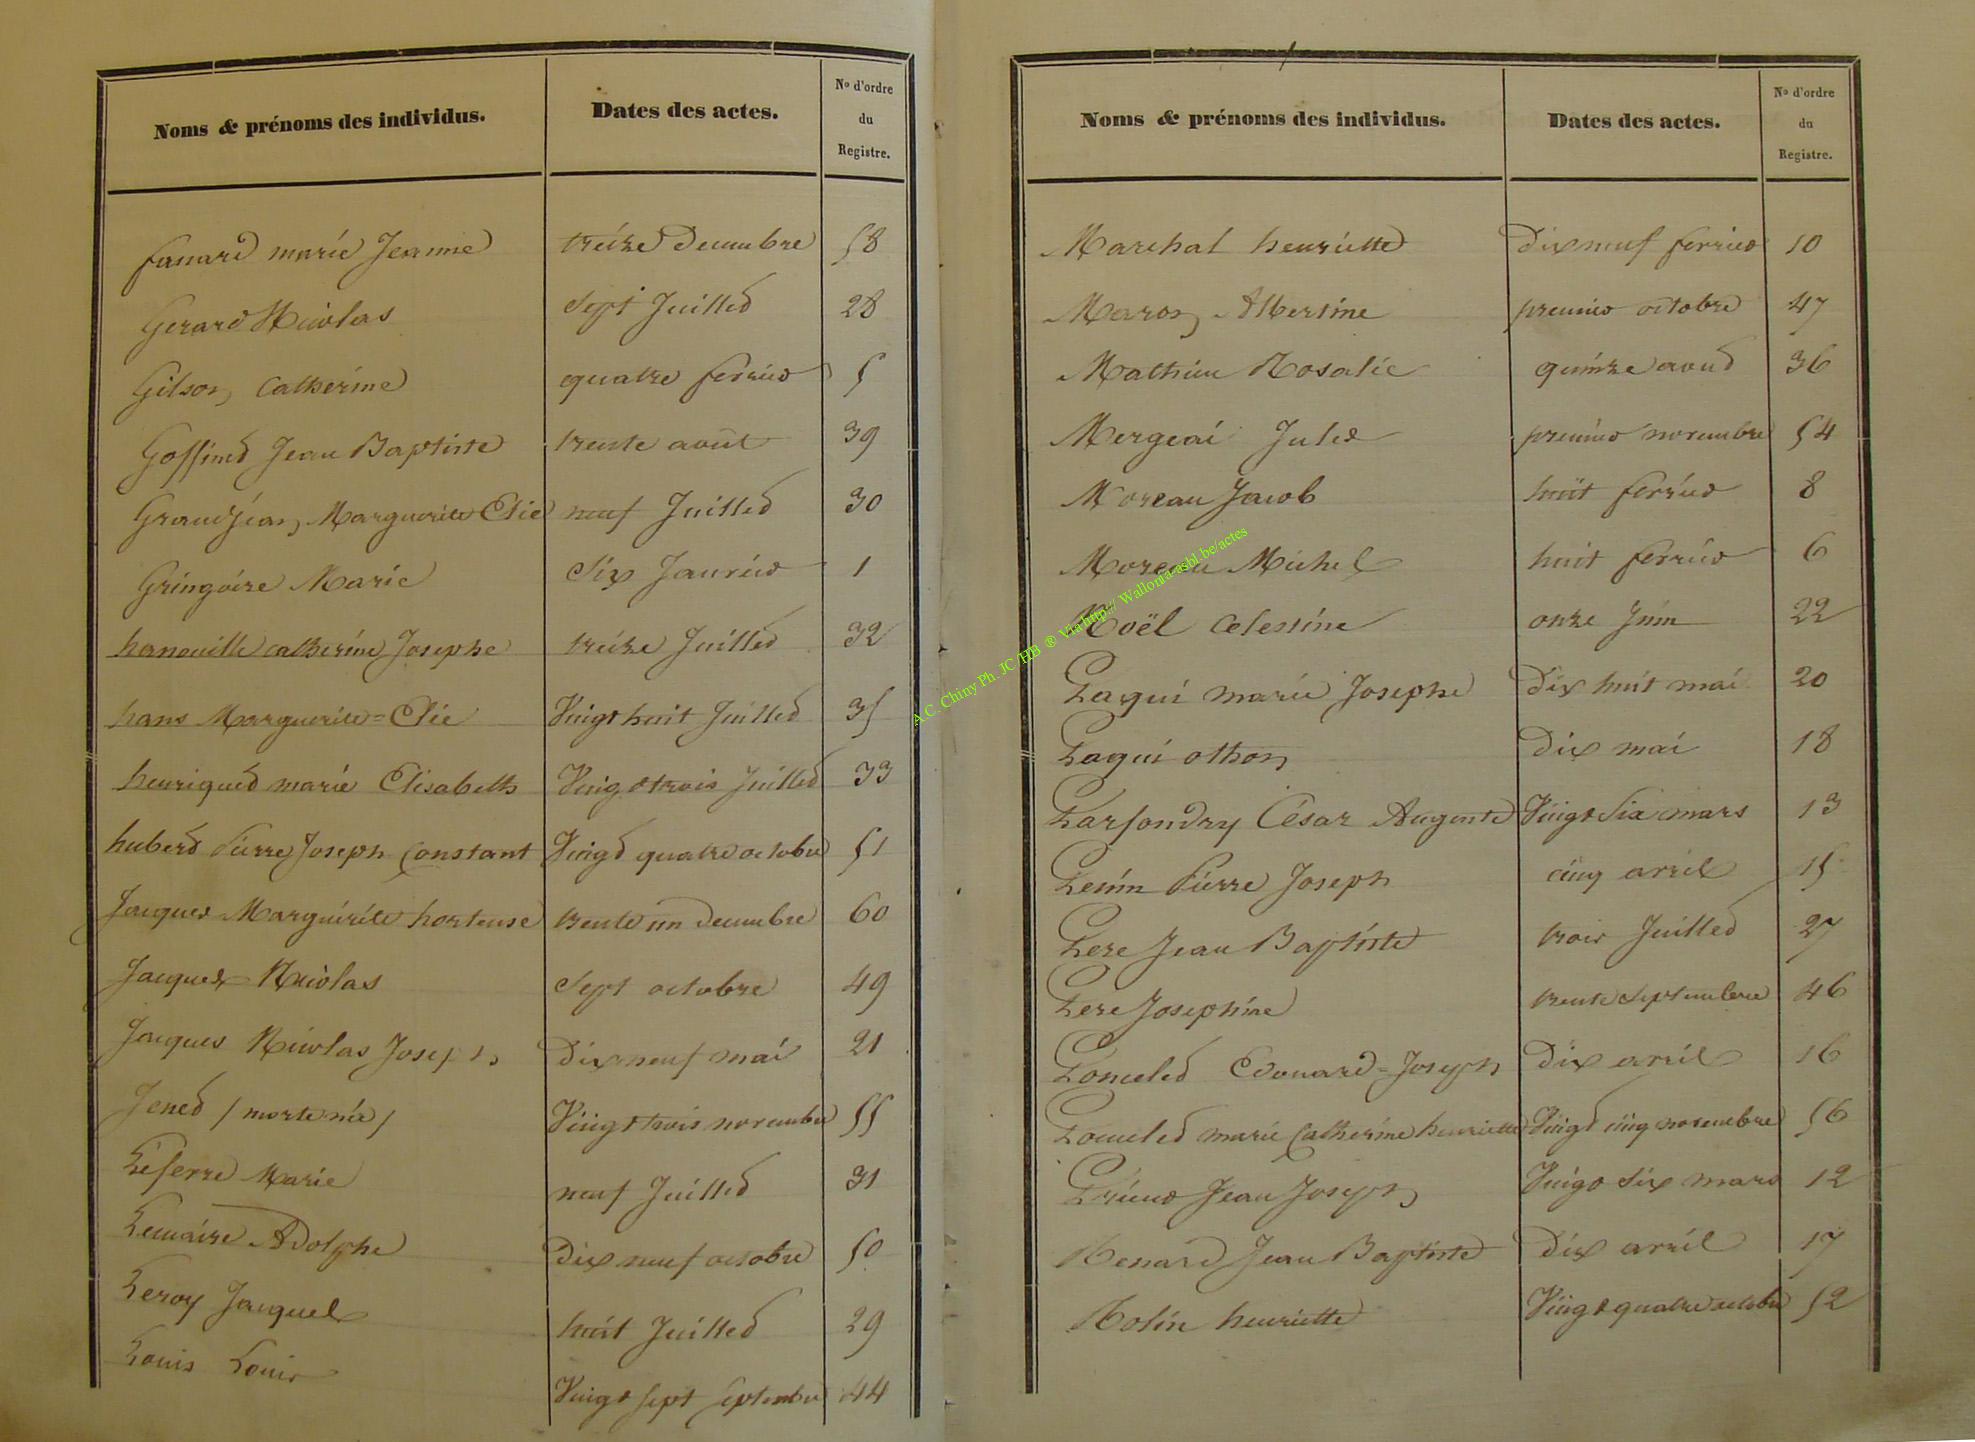 Noms & prénoms des individus. Dates des actes. No d'ordre du Registre.
fanard marie Jeanne treize Decembre 58
Gerard Nicolas Sept Juillet 28
Gilson Catherine quatre fevrier 5
Goffinet Jean Baptiste trente août 39
Grandjean Marguerite Elie neuf Juillet 30
Gringoire Marie Six Janvier 1
hanouille catherine Josephe treize Juillet 32
hans Marguerite=Elie Vingt huit Juillet 35
henriquet marie Elisabeth Vingt trois Juillet 33
hubert Pierre Joseph Constant Vingt quatre octobre 51
Jacques Marguerite hortense trente un Decembre 60
Jacques Nicolas Sept octobre 49
Jacques Nicolas Joseph Dix neuf mai 21
Jenet / morte née / Vingt trois novembre 55
Lefevre Marie neuf Juillet 31
Lemaire Adolphe Dix neuf octobre 50
Leroy Jacques huit Juillet 29
Louis Louis Vingt sept Septembre 44
Noms & prénoms des individus. Dates des actes. No d'ordre du Registre.
Marchal henriette Dix neuf fevrier 10
Maron Albertine premier octobre 47
Mathieu Rosalie quinze aout 36
Mergeai Jules premier novembre 54
Moreau Jacob huit fevrier 8
Moreau Michel huit fevrier 6
Noël Celestine onze Juin 22
Paqui marie Josephe Dix huit mai 20
Paqui othon Dix mai 18
Parfondry César Auguste Vingt Six mars 13
Penin Pierre Joseph cinq avril 15
Pere Jean Baptiste trois Juillet 27
Pere Josephine trente Septembre 46
Poncelet Edouard=Joseph Dix avril 16
Poncelet marie Catherine henriette Vingt cinq novembre 56
Prieur Jean Joseph Vingt Six mars 12
Renard Jean Baptiste Dix avril 17
Rolin henriette Vingt quatre octobre 52
A.C. Chiny Ph. JC/HB ® Via http:// Wallonia-asbl.be/actes